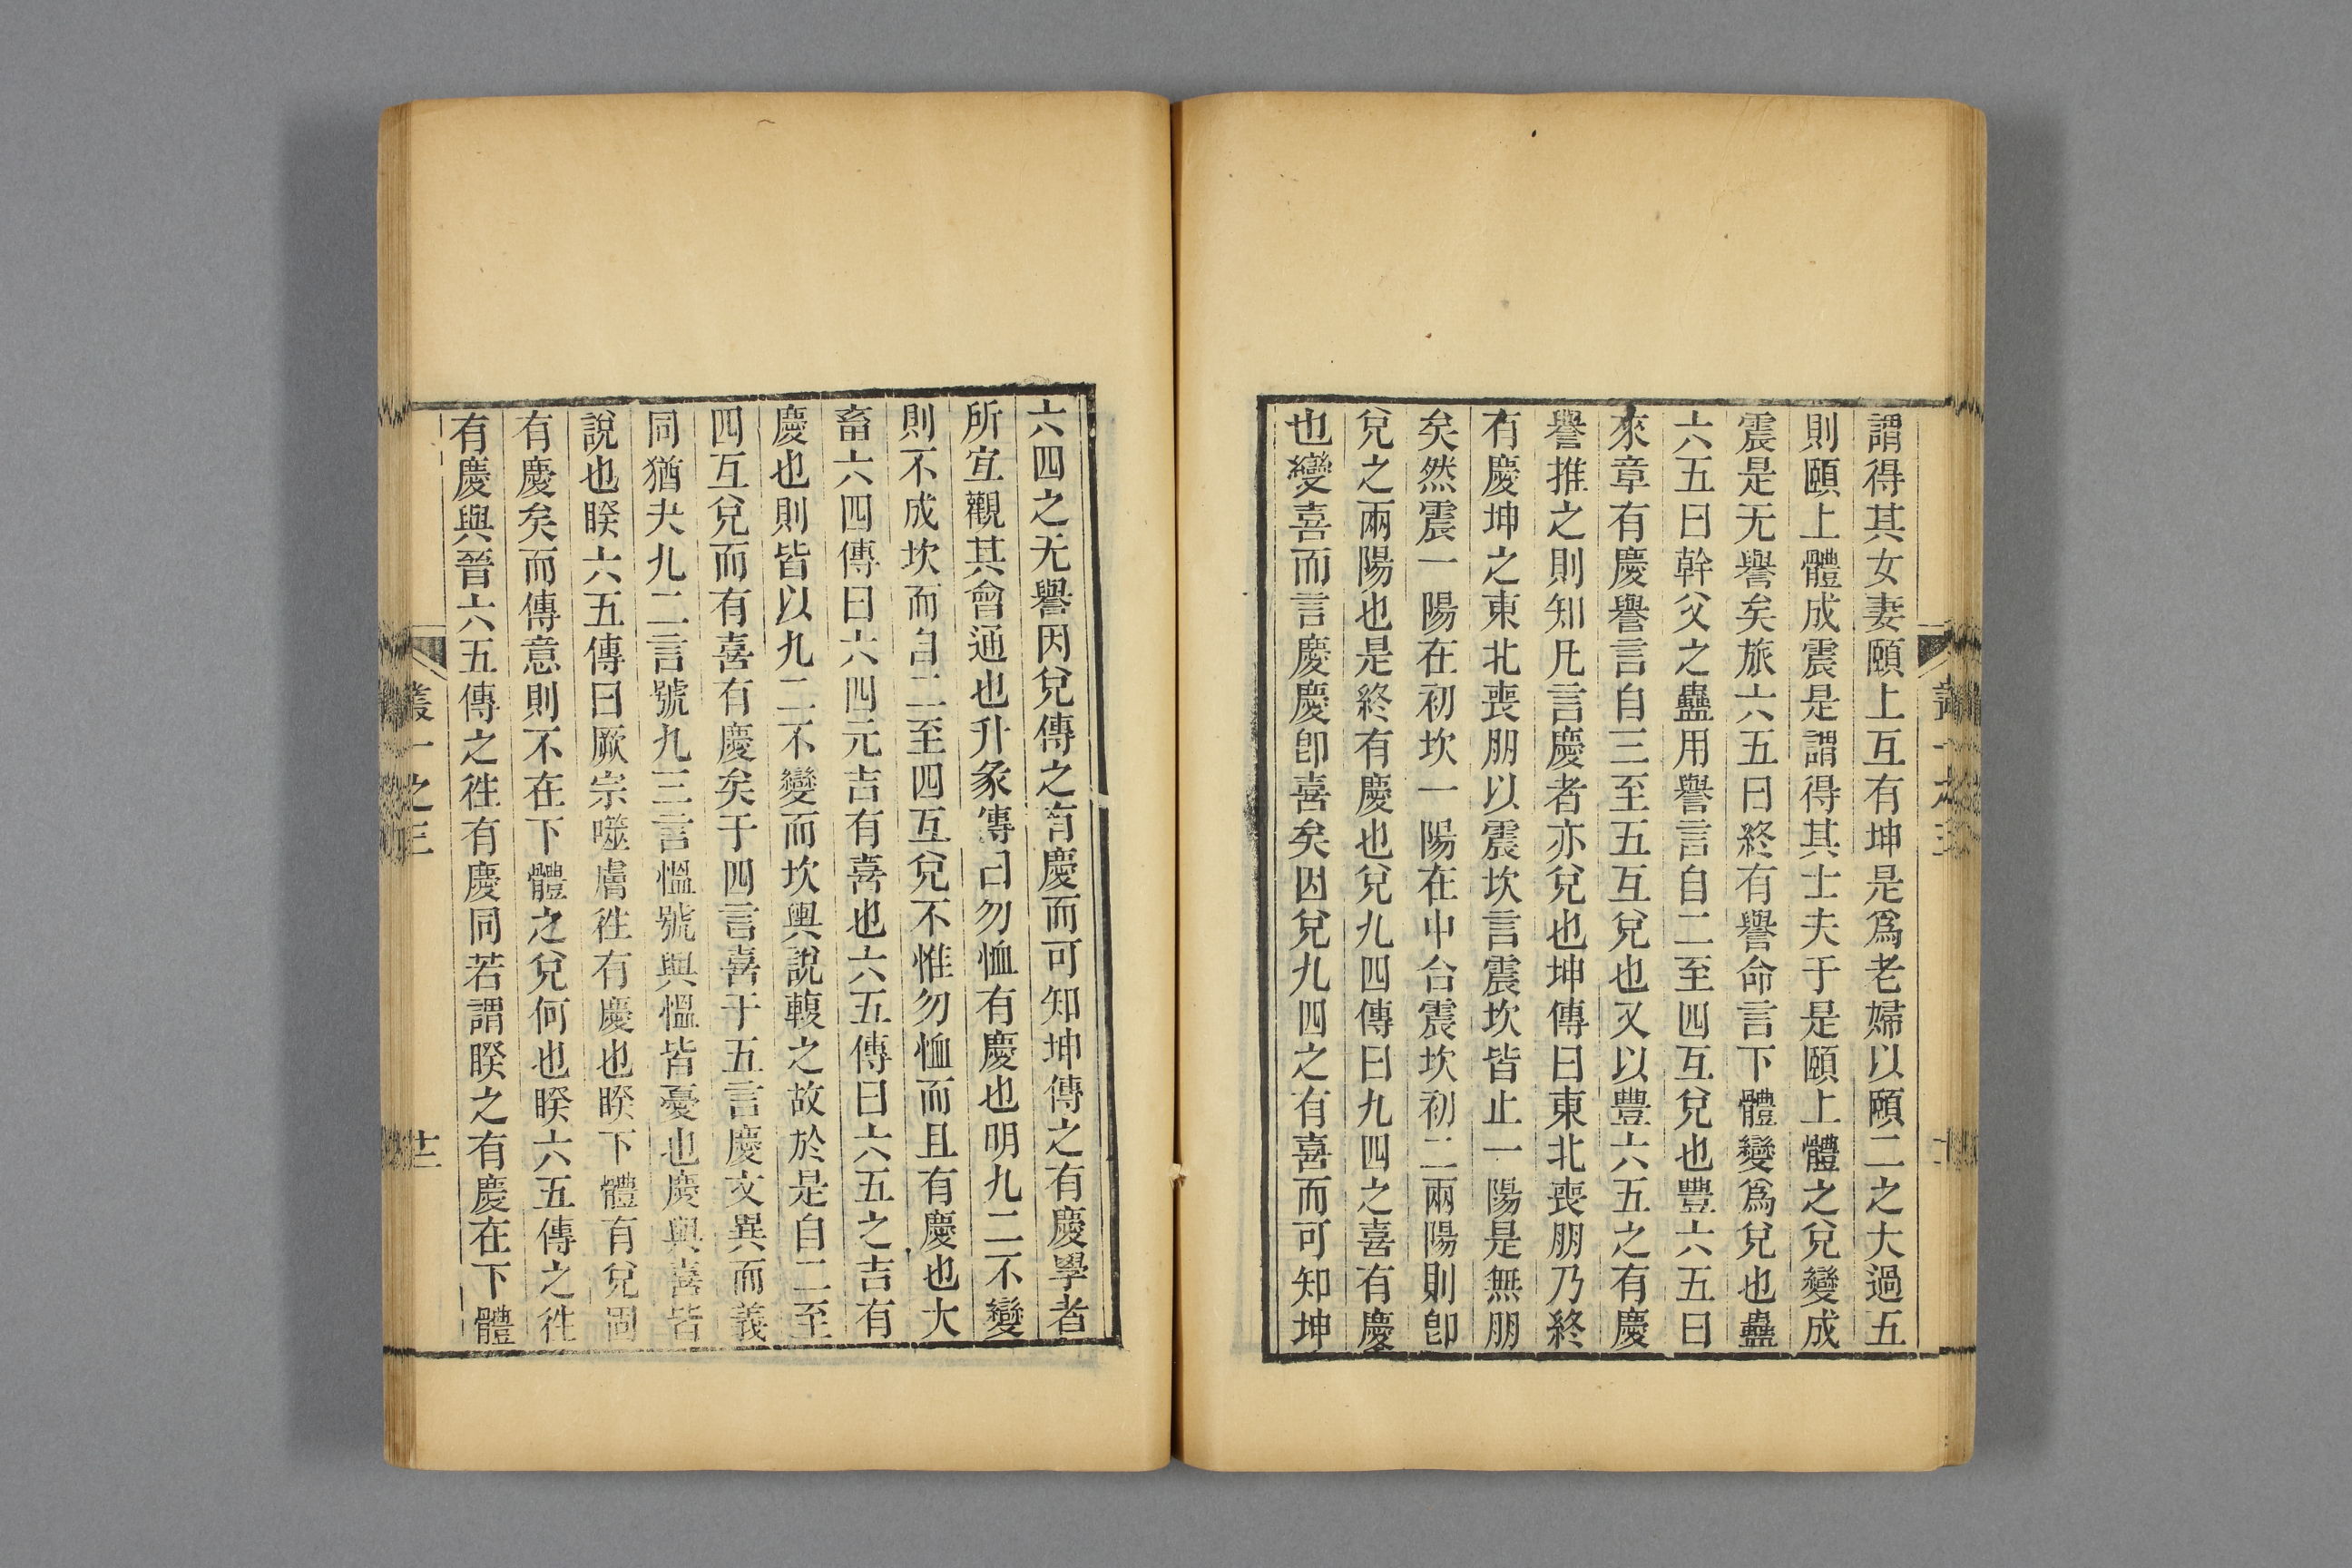 謂得其女妻頤上互有坤是爲老婦以頤二之大過五
則頤上體成震是謂得其士夫于是頤上體之兌變成
震是无譽矣旅六五曰終有譽命言下體變爲兌也蠱
六五曰幹父之蠱用譽言自二至四互兌也豐六五曰
來章有慶譽言自三至五互兌也又以豐六五之有慶
譽推之則知凡言慶者亦兌也坤傳曰東北喪朋乃終
有慶坤之東北喪朋以震坎言震坎皆止一陽是無朋
矣然震一陽在初坎一陽在中合震坎初二兩陽則卽
兌之兩陽也是終有慶也兌九四傳曰九四之喜有慶
也變喜而言慶慶卽喜矣因兌九四之有喜而可知坤
六四之无譽因兌傳之有慶而可知坤傳之有慶學者
所宜觀其會通也升彖傳曰勿恤有慶也明九二不變
則不成坎而自二至四互兌不惟勿恤而且有慶也大
畜六四傳曰六四元吉有喜也六五傳曰六五之吉有
慶也則皆以九二不變而坎輿說輹之故於是自二至
四互兌而有喜有慶矣于四言喜于五言慶文異而義
同猶夬九二言號九三言慍號與慍皆憂也慶與喜皆
說也睽六五傳曰厥宗噬膚往有慶也睽下體有兌固
有慶矣而傳意則不在下體之兌何也睽六五傳之往
有慶與晉六五傳之往有慶同若謂睽之有慶在下體
叢一之三